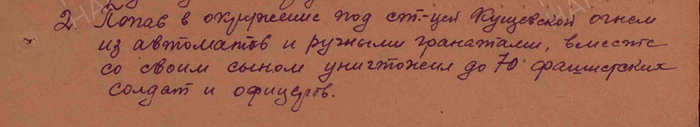 2. Попав в окружение под ст-цей Кущевской огнем
из автоматов и ручными гранатами, вместе
со своим сыном уничтожил до 70 фашистских
солдат и офицеров.